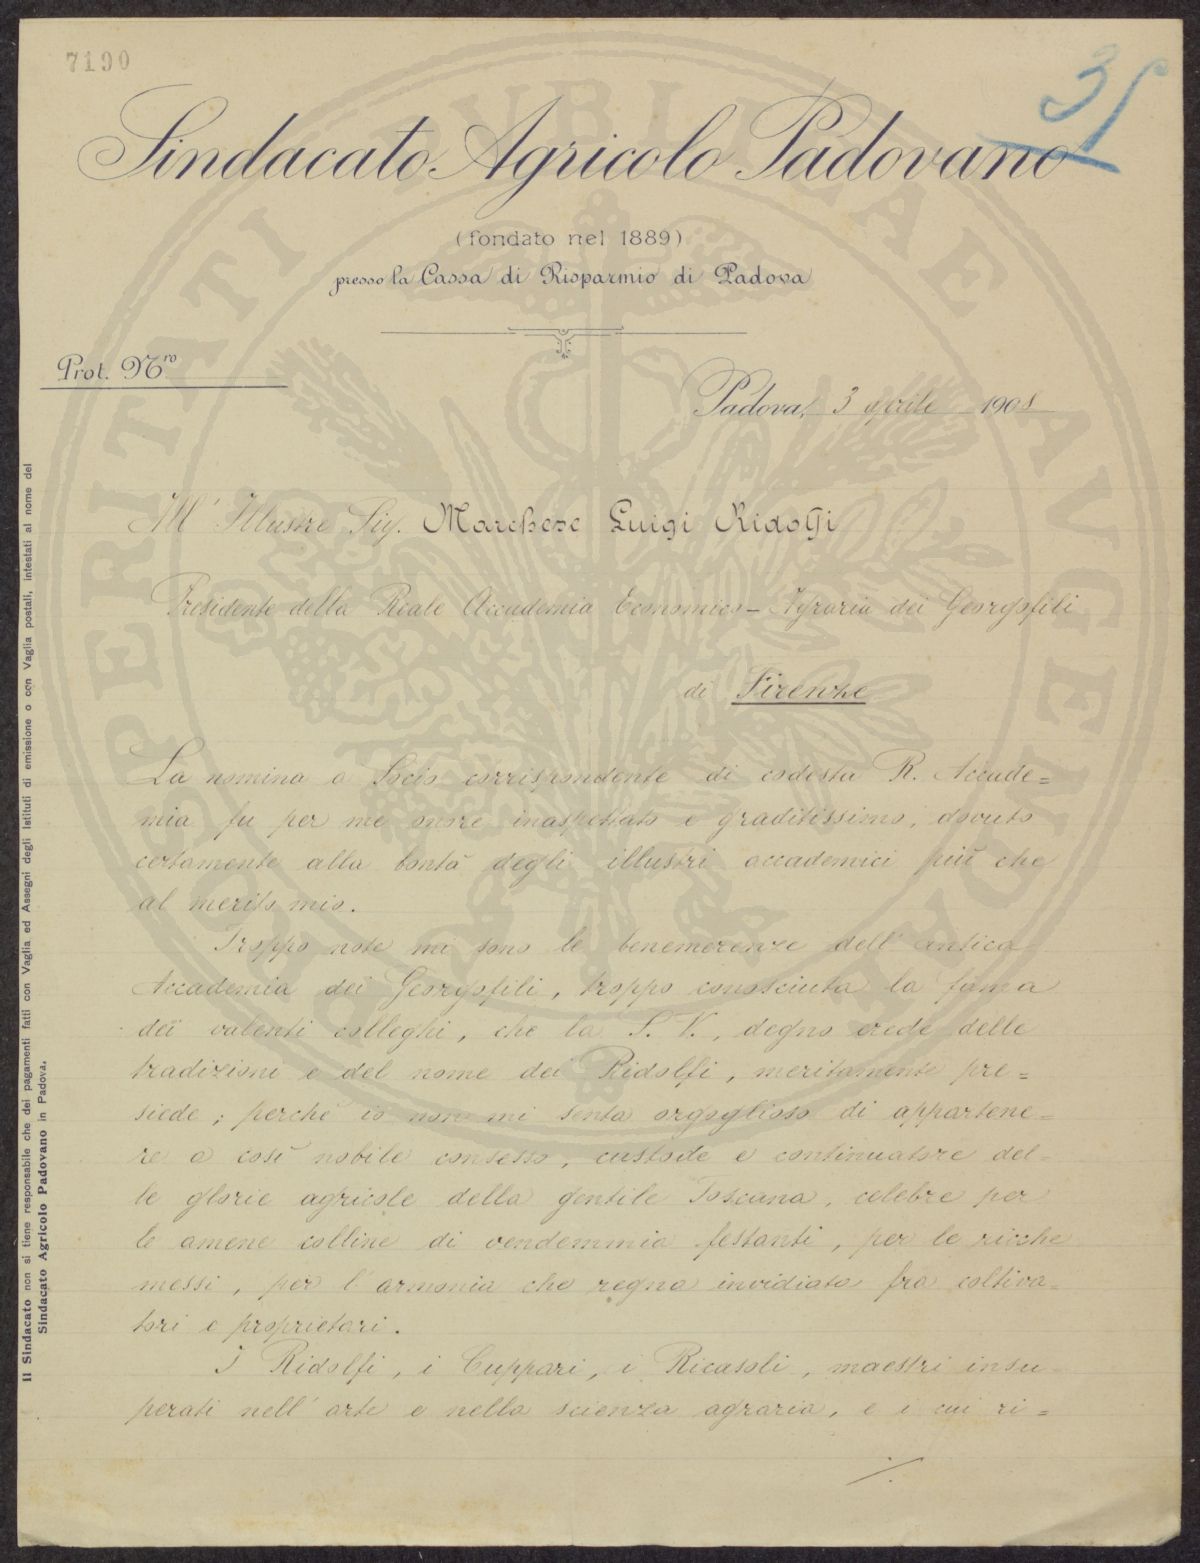 7190
35
Sindacato Agricolo Padovano
(fondato nel 1889)
presso la Cassa di Risparmio di Padova
Prot. Nro
Padova, 3 aprile 1908
All' Illustre Sig. Marchese Luigi Ridolfi
Presidente della Reale Accademia Economico-Agraria dei Georgofili
di Firenze
La nomina a Socio corrispondente di codesta R. Accade=
mia fu per me onore inaspettato e graditissimo, dovuto
certamente alla bontà degli illustri accademici più che
al merito mio.
Troppo note mi sono le benemerenze dell' antica
Accademia dei Georgofili, troppo conosciuta la fama
dei valenti colleghi, che la S. V., degno erede delle
tradizioni e del nome dei Ridolfi, meritamente pre=
siede; perchè io non mi senta orgoglioso di appartene=
re a così nobile consesso, custode e continuatore del=
le glorie agricole della gentile Toscana, celebre per
le amene colline di vendemmia festanti, per le ricche
messi, per l'armonia che regna invidiata fra coltiva=
tori e proprietari.
I Ridolfi, i Cuppari, i Ricasoli, maestri insu=
perati nell' arte e nella scienza agraria, e i cui ri=
./.
Il Sindacato non si tiene responsabile che dei pagamenti fatti con Vaglia ed Assegni degli Istituti di emissione o con Vaglia postali, intestati al nome del
Sindacato Agricolo Padovano in Padova.
PROSPERITATI PUBLICAE AUGENDAE